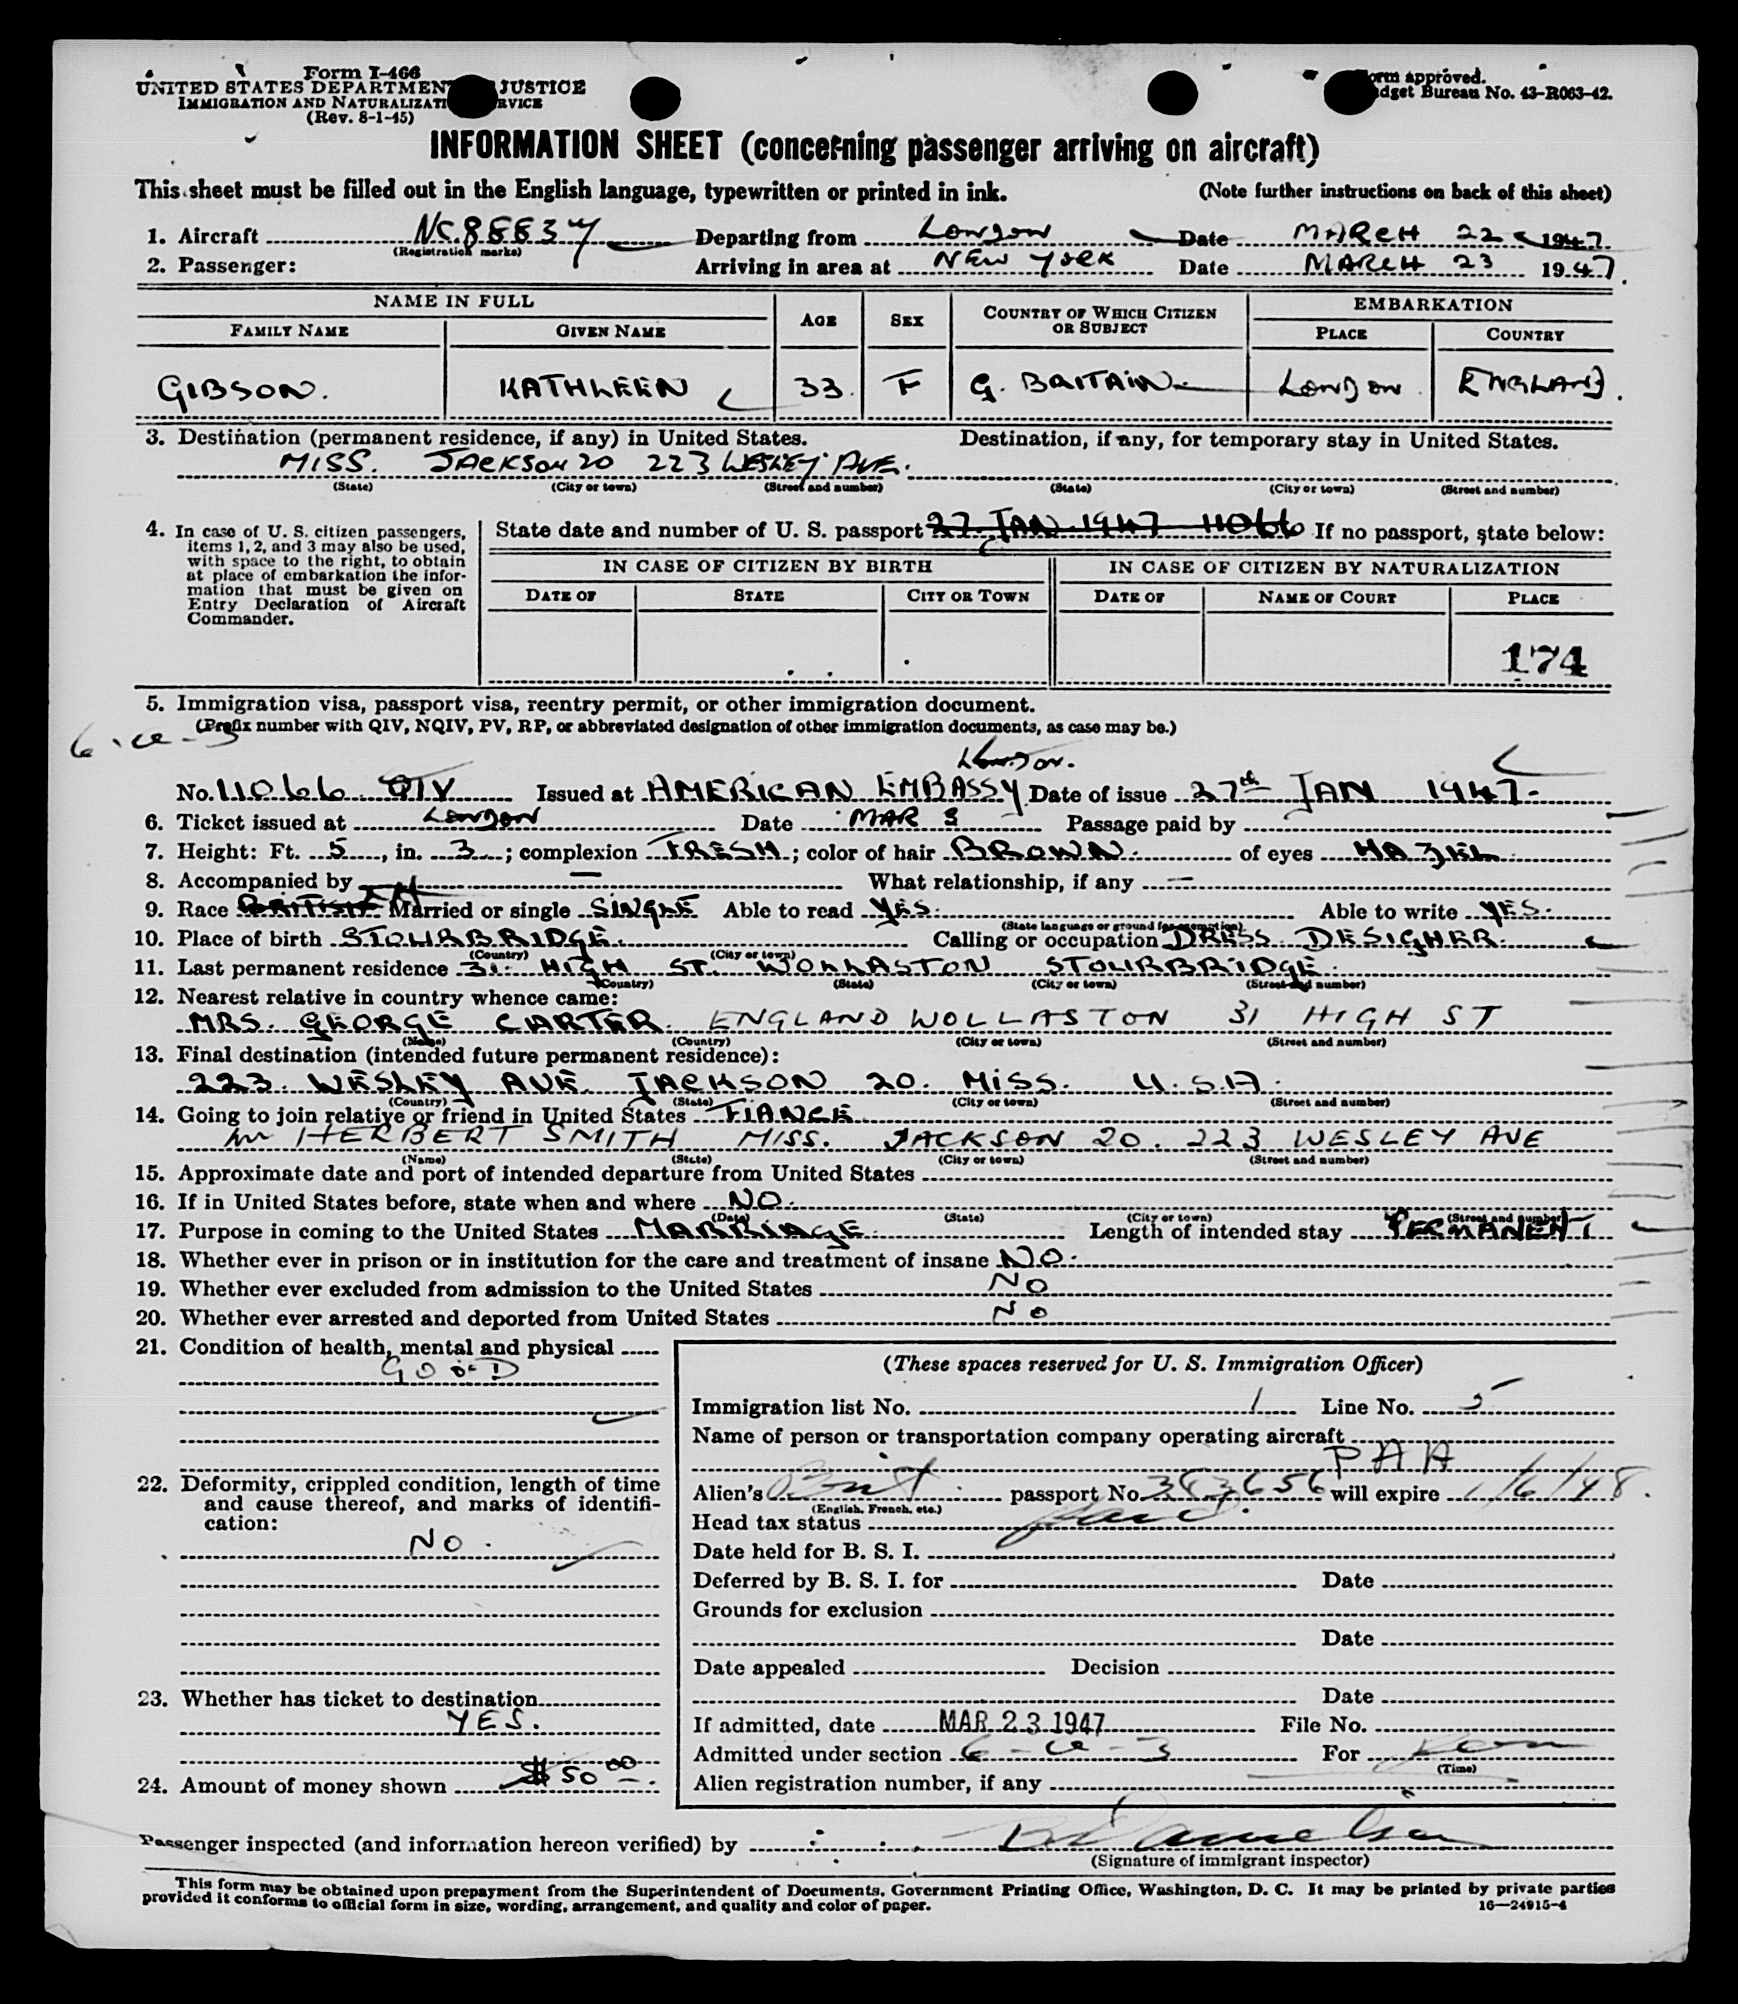 Form I-466
UNITED STATES DEPARTMENT JUSTICE
IMMIGRATION AND NATURALIZATI RVICE
(Rev. 8-1-45)
orm approved.
dget Bureau No. 43-R063-42.
INFORMATION SHEET (concerning passenger arriving on aircraft)
This sheet must be filled out in the English language, typewritten or printed in ink. (Note further instructions on back of this sheet)
1. Aircraft NC.88837 Departing from London Date MARCH 22 1947.
(Registration marks)
2. Passenger: Arriving in area at NEW YORK Date MARCH 23 1947.
NAME IN FULL AGE SEX COUNTRY OF WHICH CITIZEN OR SUBJECT EMBARKATION
FAMILY NAME GIVEN NAME PLACE COUNTRY
GIBSON. KATHLEEN 33. F G. BRITAIN London ENGLAND.
3. Destination (permanent residence, if any) in United States. Destination, if any, for temporary stay in United States.
MISS. JACKSON 20 223 WESLEY AVE.
(State) (City or town) (Street and number) (State) (City or town) (Street and number)
4. In case of U. S. citizen passengers, items 1, 2, and 3 may also be used, with space to the right, to obtain at place of embarkation the information that must be given on Entry Declaration of Aircraft Commander.
State date and number of U. S. passport 27. JAN. 1947 11066 If no passport, state below:
IN CASE OF CITIZEN BY BIRTH IN CASE OF CITIZEN BY NATURALIZATION
DATE OF STATE CITY OR TOWN DATE OF NAME OF COURT PLACE
174
5. Immigration visa, passport visa, reentry permit, or other immigration document.
(Prefix number with QIV, NQIV, PV, RP, or abbreviated designation of other immigration documents, as case may be.)
London.
No. 11066 QIV Issued at AMERICAN EMBASSY Date of issue 27th JAN 1947.
6. Ticket issued at London Date MAR 3 Passage paid by
7. Height: Ft. 5, in. 3; complexion FRESH; color of hair BROWN. of eyes HAZEL.
8. Accompanied by — What relationship, if any —
9. Race BRITISH Married or single SINGLE Able to read YES. Able to write YES.
(State language or ground for exemption)
10. Place of birth STOURBRIDGE. Calling or occupation DRESS DESIGNER.
(Country) (City or town)
11. Last permanent residence 31. HIGH ST. WOLLASTON STOURBRIDGE.
(Country) (State) (City or town) (Street and number)
12. Nearest relative in country whence came:
MRS. GEORGE CARTER. ENGLAND WOLLASTON 31 HIGH ST
(Name) (Country) (City or town) (Street and number)
13. Final destination (intended future permanent residence):
223. WESLEY AVE. JACKSON 20. MISS. U.S.A.
(Country) (State) (City or town) (Street and number)
14. Going to join relative or friend in United States FIANCE.
Mr HERBERT SMITH MISS. JACKSON 20. 223 WESLEY AVE
(Name) (State) (City or town) (Street and number)
15. Approximate date and port of intended departure from United States
16. If in United States before, state when and where NO.
(Date) (State) (City or town) (Street and number)
17. Purpose in coming to the United States MARRIAGE. Length of intended stay PERMANENT
18. Whether ever in prison or in institution for the care and treatment of insane NO.
19. Whether ever excluded from admission to the United States NO
20. Whether ever arrested and deported from United States NO
21. Condition of health, mental and physical
GOOD
22. Deformity, crippled condition, length of time and cause thereof, and marks of identification:
NO.
23. Whether has ticket to destination
YES.
24. Amount of money shown $50 00.
(These spaces reserved for U. S. Immigration Officer)
Immigration list No. 1 Line No. 5
Name of person or transportation company operating aircraft
PAA
Alien's Brit. passport No. 383656 will expire 1/6/48.
(English, French, etc.)
Head tax status
Date held for B. S. I.
Deferred by B. S. I. for Date
Grounds for exclusion
Date
Date appealed Decision
Date
If admitted, date MAR 23 1947 File No.
Admitted under section 6-a-3 For
(Time)
Alien registration number, if any
Passenger inspected (and information hereon verified) by
(Signature of immigrant inspector)
This form may be obtained upon prepayment from the Superintendent of Documents, Government Printing Office, Washington, D. C. It may be printed by private parties
provided it conforms to official form in size, wording, arrangement, and quality and color of paper. 16—24915-4